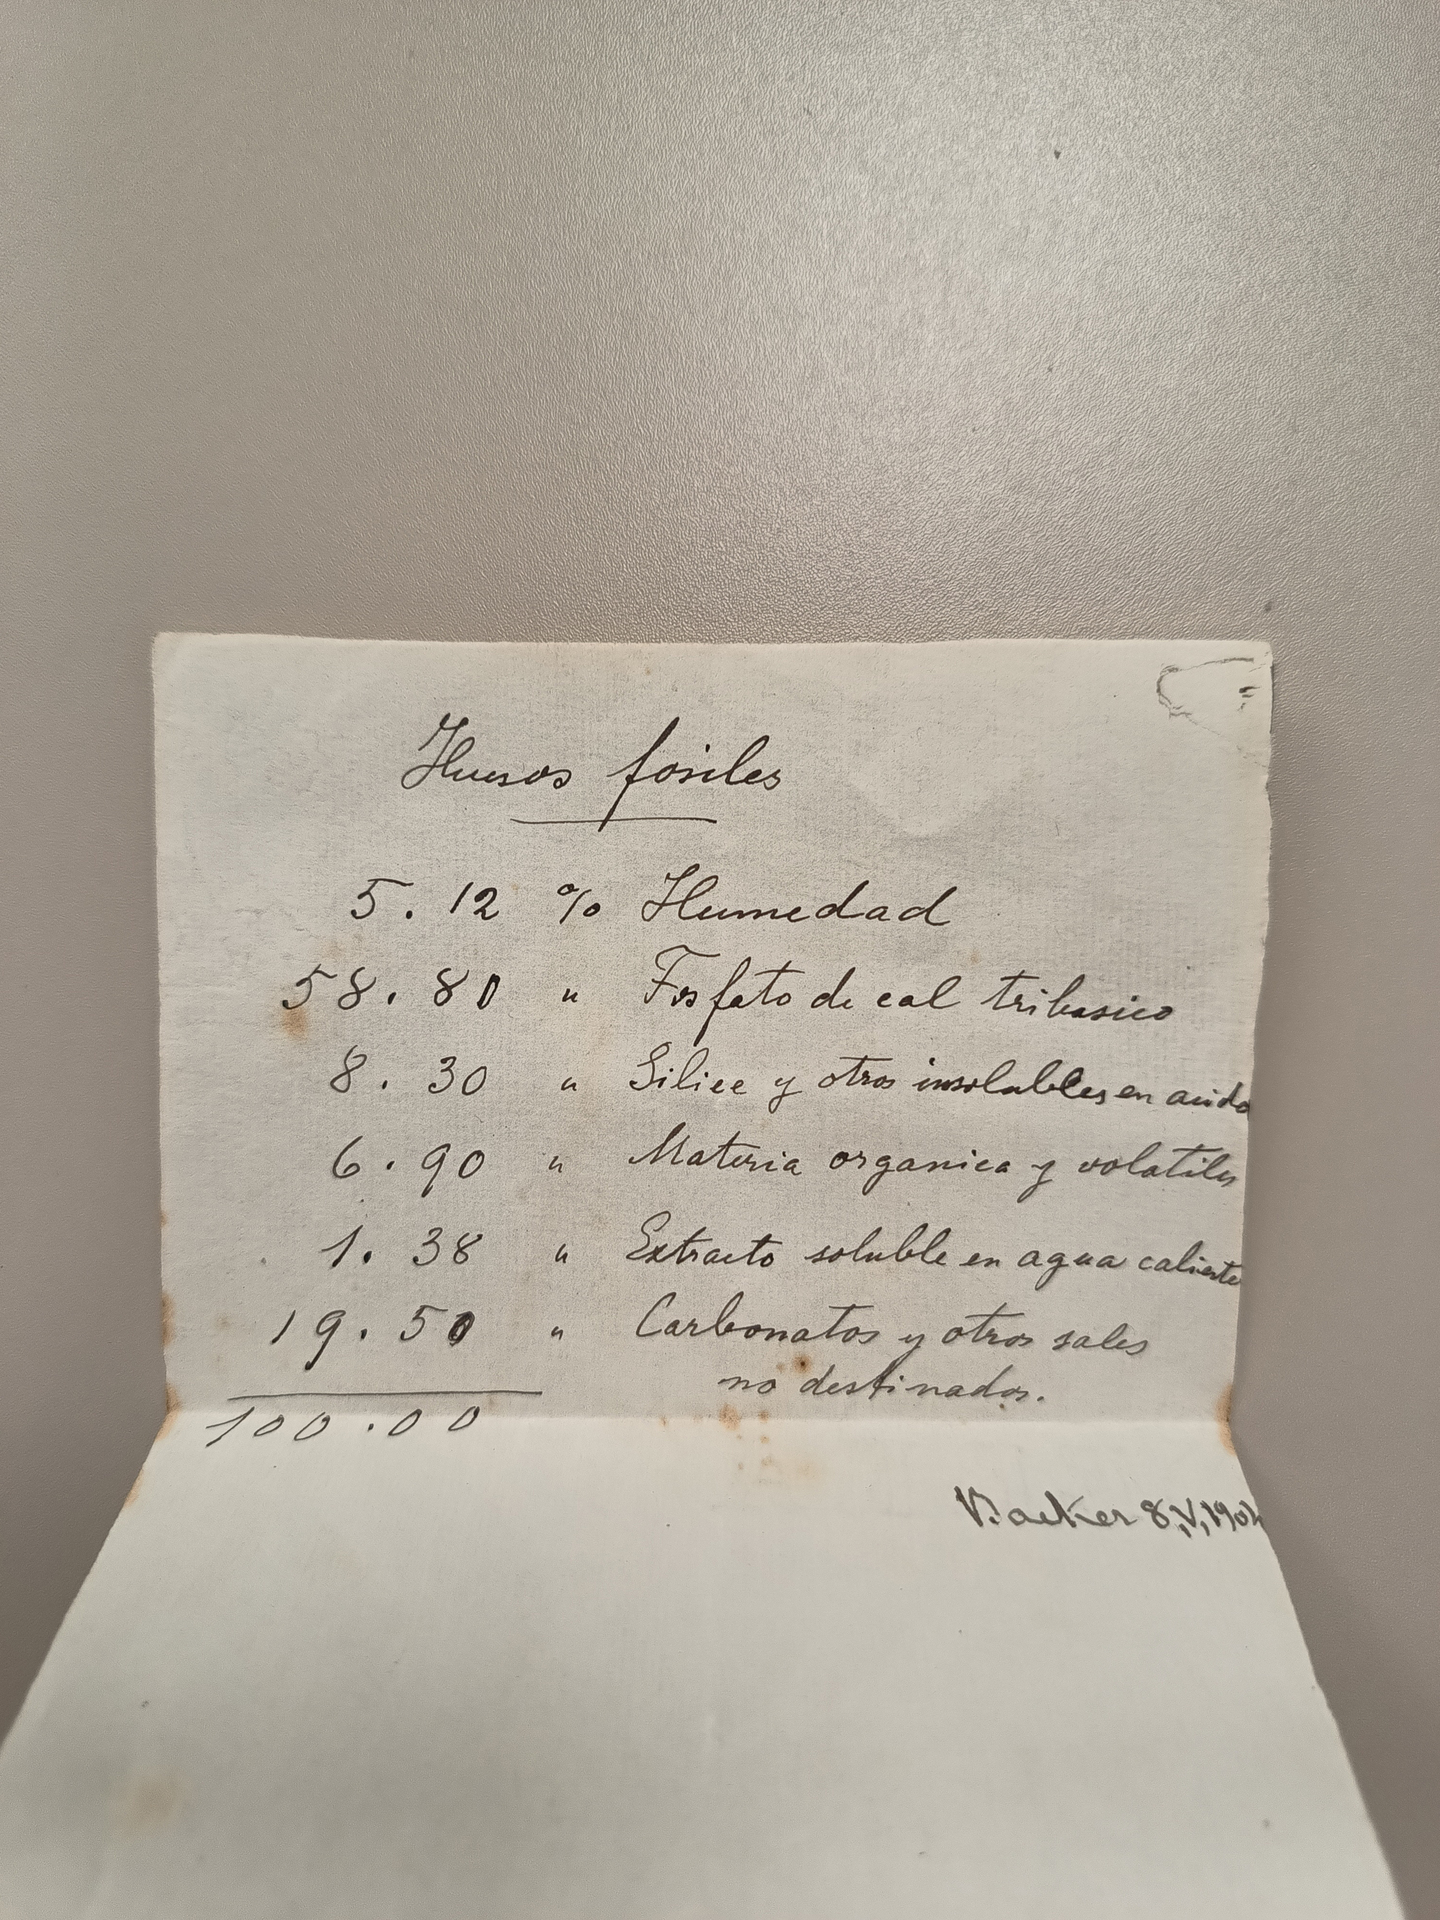 Huesos fósiles
5.12 % Humedad
58.80 " Fosfato de cal tribasico
8.30 " Silice y otros insolubles en acido
6.90 " Materia organica y volatiles
1.38 " Extracto soluble en agua caliente
19.50 " Carbonatos y otros sales
no destinados.
100.00
8,V,190